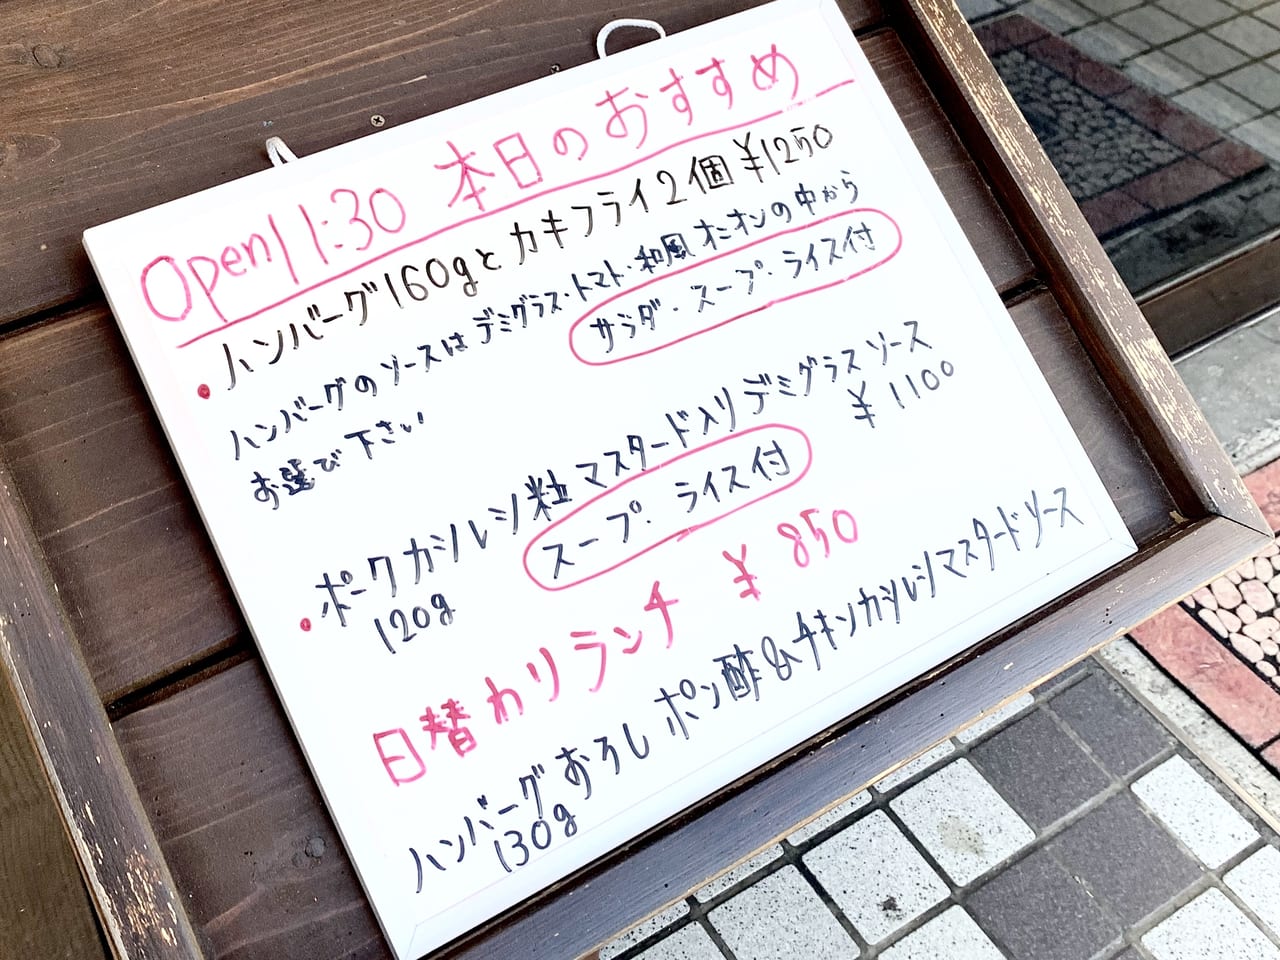 Open 11:30 本日のおすすめ
・ハンバーグ160gとカキフライ2個 ¥1250
ハンバーグのソースはデミグラス・トマト・和風オニオンの中から
お選び下さい
サラダ・スープ・ライス付
・ポークカシルシ粒マスタード入りデミグラスソース
120g
¥1100
スープ・ライス付
日替わりランチ ¥850
ハンバーグおろしポン酢&チキンカシルシマスタードソース
130g